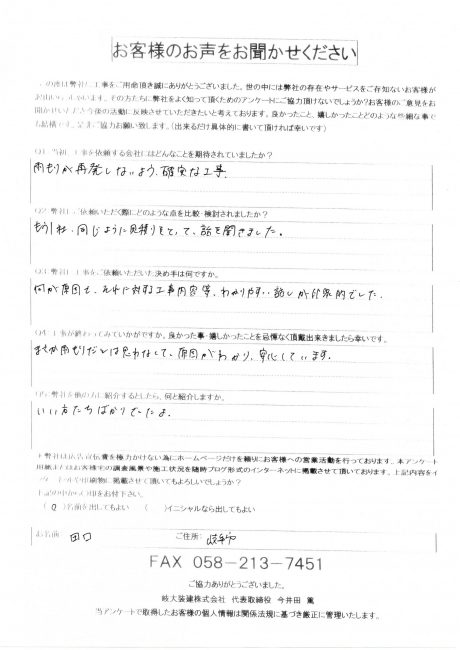 お客様のお声をお聞かせください
この度は弊社に工事をご用命頂き誠にありがとうございました。世の中には弊社の存在やサービスをご存知ないお客様が
お聞かせいただき今後の活動に反映させていただきたいと考えております。良かったこと、嬉しかったことどのような些細な事で
も結構です。是非ご協力お願い致します。(出来るだけ具体的に書いて頂ければ幸いです)
Q1.当初、工事を依頼する会社にはどんなことを期待されていましたか?
雨もりが再発しないよう、確実な工事。
Q2.弊社にご依頼いただく際にどのような点を比較・検討されましたか?
もう1社、同じように見積りをとって、話を聞きました。
Q3.弊社に工事をご依頼いただいた決め手は何ですか。
何が原因で、それに対する工事内容等、わかりやすい話しが印象的でした。
Q4.工事が終わってみていかがですか。良かった事・嬉しかったことを忌憚なく頂戴出来きましたら幸いです。
まさか雨もりだとは思わなくて、原因がわかり、安心しています。
Q5.弊社を他の方に紹介するとしたら、何と紹介しますか。
いい方たちばかりでしたよ。
※弊社は広告宣伝費を極力かけない為にホームページだけを頼りにお客様への営業活動を行っております。本アンケート
用紙またはお客様宅の調査風景や施工状況を随時ブログ形式のインターネットに掲載させて頂いております。上記内容をイ
ンターネットや印刷物に掲載させて頂いてもよろしいでしょうか?
上記の中から○印をお付下さい。
(○)名前を出してもよい ( )イニシャルなら出してもよい
お名前 田口 ご住所: 岐阜市
FAX 058-213-7451
ご協力ありがとうございました。
岐大装建株式会社 代表取締役 今井田 篤
当アンケートで取得したお客様の個人情報は関係法規に基づき厳正に管理いたします。